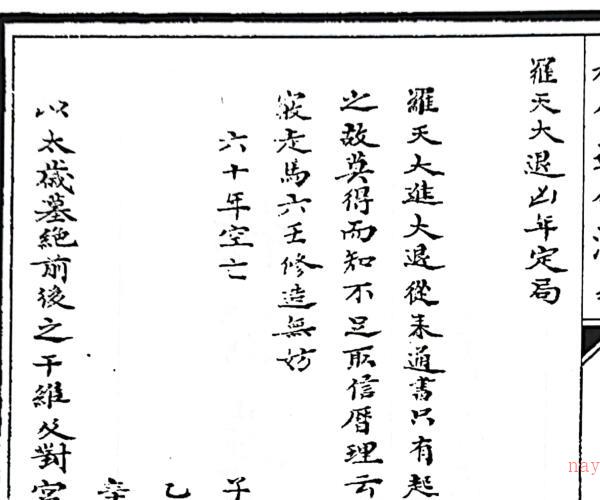 羅天大退凶年定局
羅天大進大退從来通書只有起
之故莫得而知不足取信曆理云
竅走馬六壬修造無妨
六十年空亡
子
乙
辛
以太歲墓絶前後之干維及對宮
nay